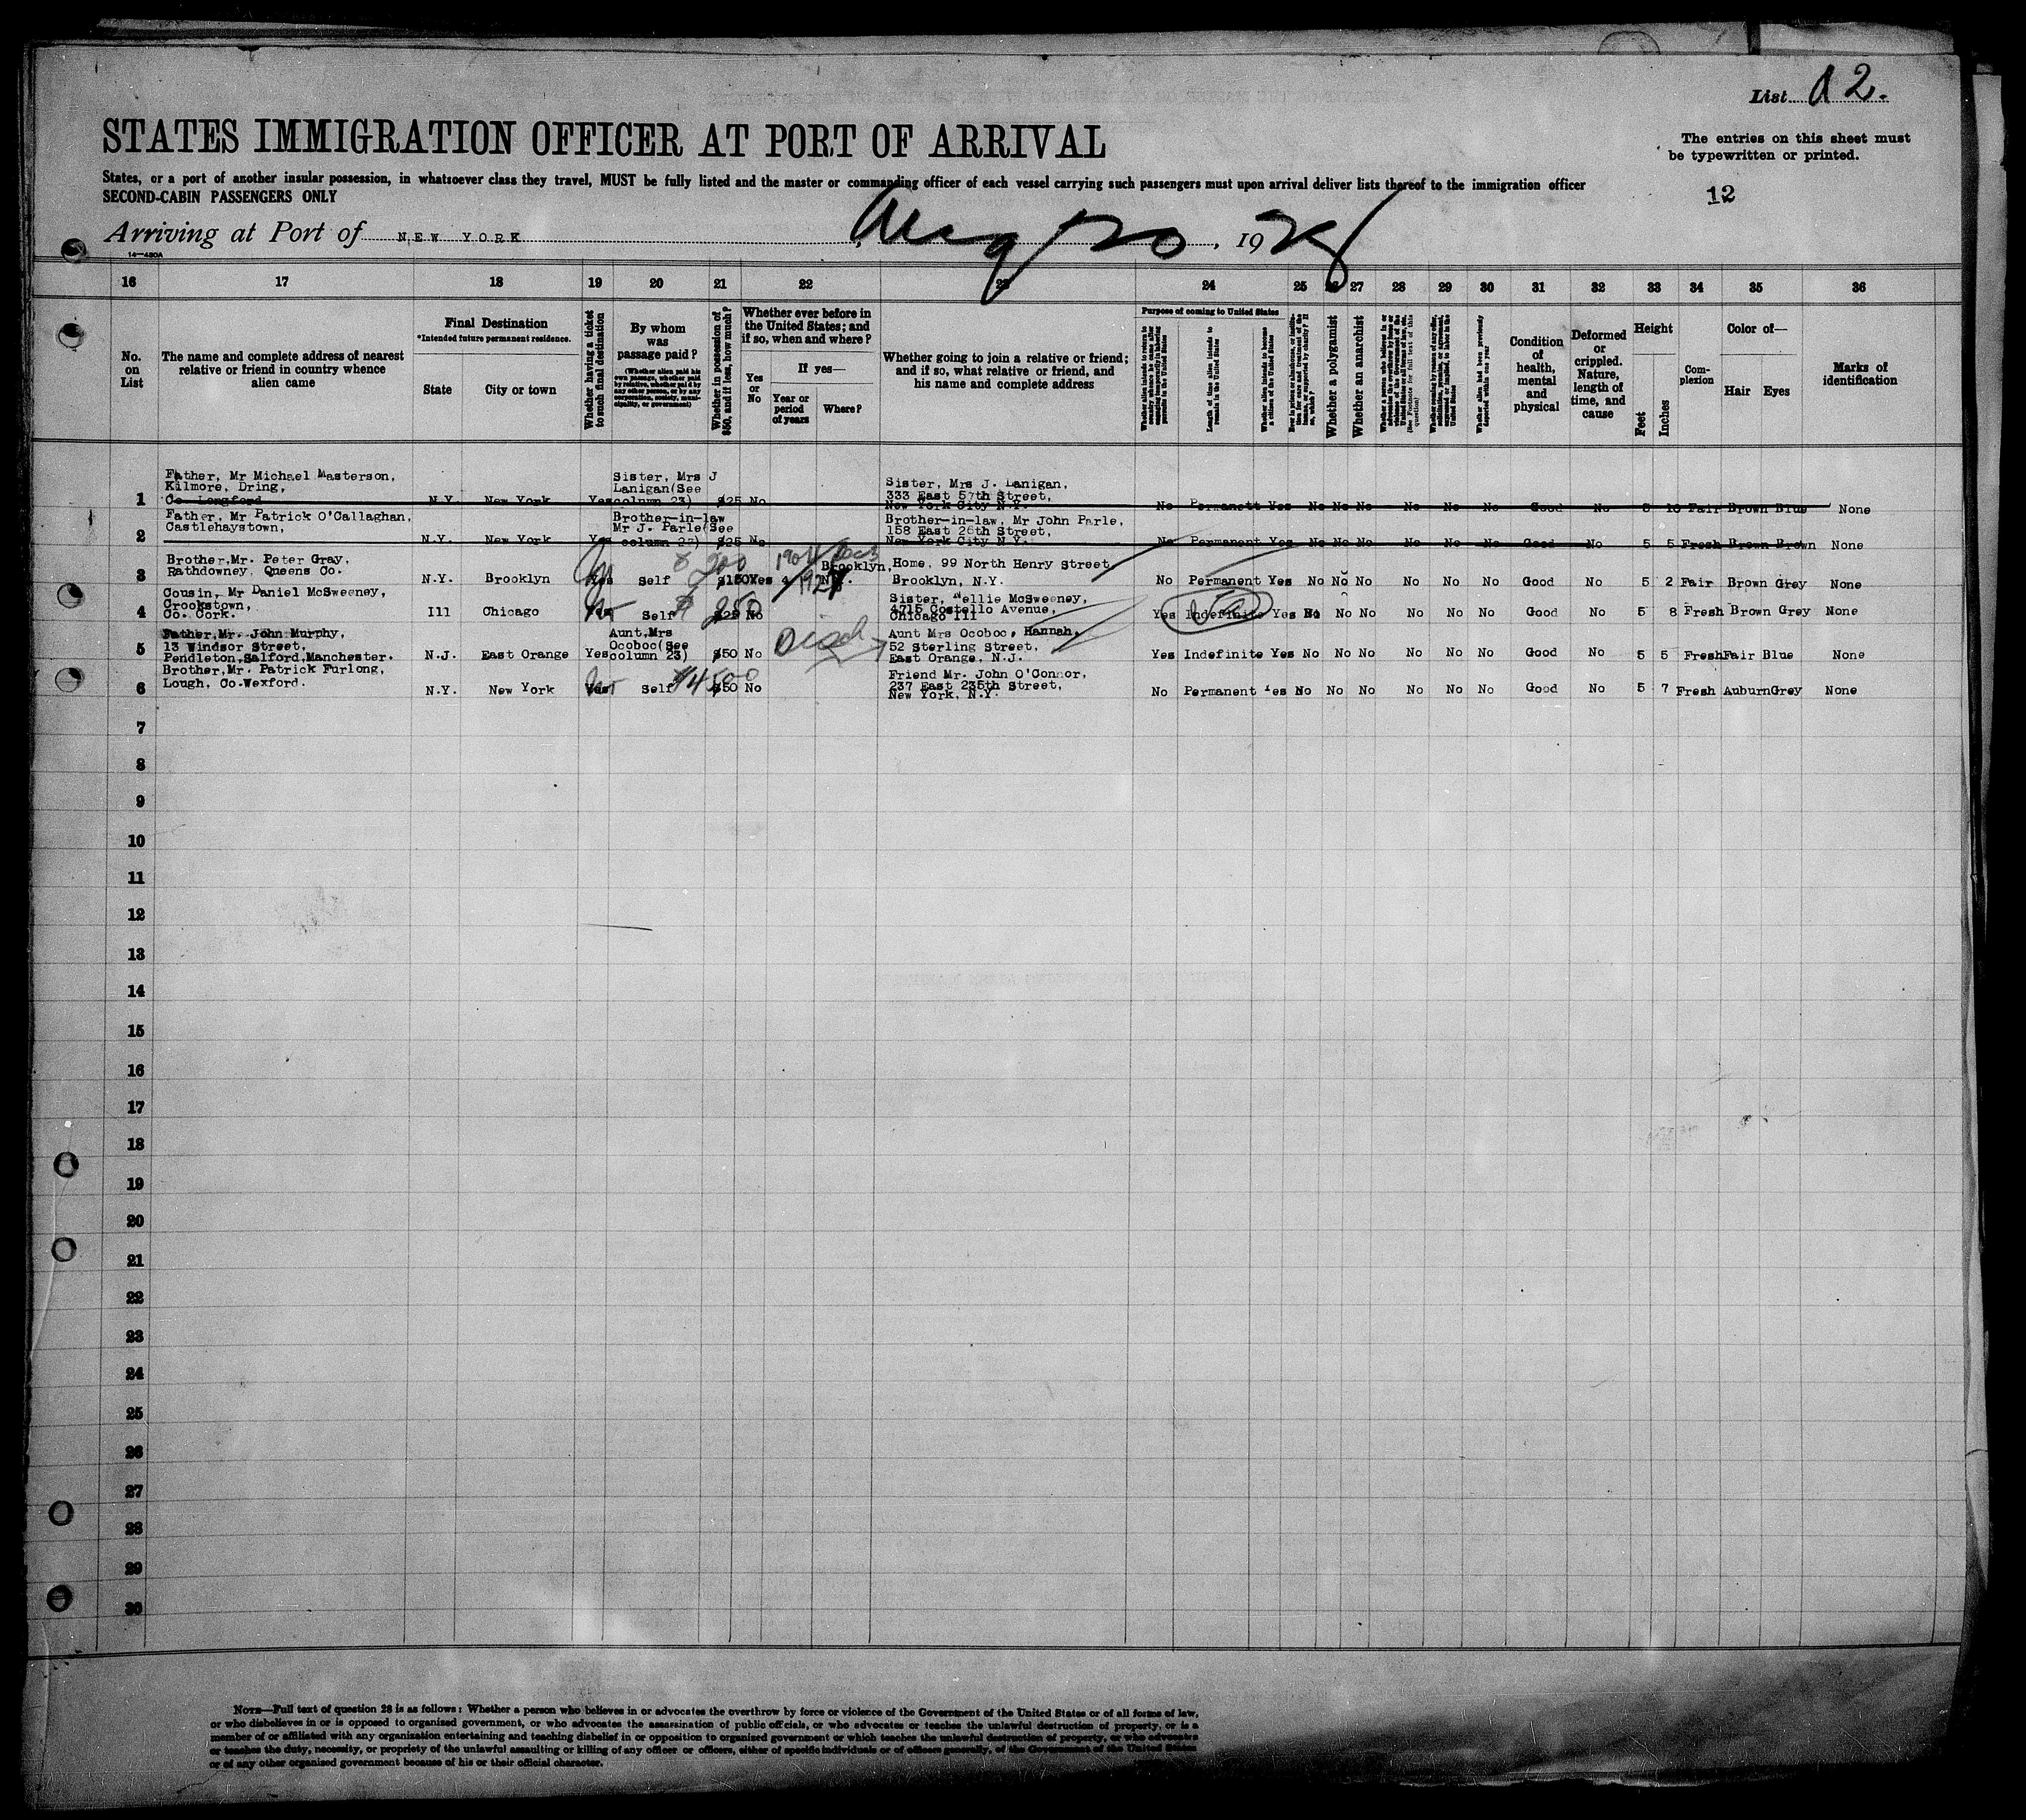 List 12.
STATES IMMIGRATION OFFICER AT PORT OF ARRIVAL
The entries on this sheet must
be typewritten or printed.
States, or a port of another insular possession, in whatsoever class they travel, MUST be fully listed and the master or commanding officer of each vessel carrying such passengers must upon arrival deliver lists thereof to the immigration officer
SECOND-CABIN PASSENGERS ONLY
12
Arriving at Port of NEW YORK, Aug 20, 1928
14—430A
16 17 18 19 20 21 22 23 24 25 26 27 28 29 30 31 32 33 34 35 36
No. on List
The name and complete address of nearest relative or friend in country whence alien came
Final Destination
*Intended future permanent residence.
State
City or town
Whether having a ticket to such final destination
By whom was passage paid?
(Whether alien paid his own passage, whether paid by relative, whether paid by any other person, or by any corporation, society, municipality, or government)
Whether in possession of $50, and if less, how much?
Whether ever before in the United States; and if so, when and where?
Yes or No
If yes—
Year or period of years
Where?
Whether going to join a relative or friend; and if so, what relative or friend, and his name and complete address
Purpose of coming to United States
Length of time alien intends to remain in the United States
Whether alien intends to become a citizen of the United States
Whether a polygamist
Whether an anarchist
Whether alien had been previously deported within one year
Condition of health, mental and physical
Deformed or crippled. Nature, length of time, and cause
Height
Feet
Inches
Complexion
Color of—
Hair Eyes
Marks of identification
1 Father, Mr Michael Masterson,
Kilmore, Dring,
Co Longford N.Y. New York Yes Sister, Mrs J Lanigan(See column 23) $25 No Sister, Mrs J. Lanigan,
333 East 57th Street,
New York City N.Y. No Permanent Yes No No No No No No Good No 5 10 Fair Brown Blue None
2 Father, Mr Patrick O'Callaghan,
Castlehaystown, N.Y. New York Yes Brother-in-law Mr J. Parle(See column 23) $25 No Brother-in-law, Mr John Parle,
158 East 26th Street,
New York City N.Y. No Permanent Yes No No No No No No Good No 5 5 Fresh Brown Brown None
3 Brother,Mr. Peter Gray,
Rathdowney, Queens Co. N.Y. Brooklyn Yes Self 200 $150 Yes 1904 Brooklyn, N.Y. Home, 99 North Henry Street,
Brooklyn, N.Y. No Permanent Yes No No No No No No Good No 5 2 Fair Brown Grey None
4 Cousin, Mr Daniel McSweeney,
Crookstown,
Co. Cork. Ill Chicago Yes Self $250 $25 No Sister, Nellie McSweeney,
4715 Costello Avenue,
Chicago Ill Yes Indefinite Yes No No No No No No Good No 5 8 Fresh Brown Grey None
5 Father,Mr. John Murphy,
13 Windsor Street,
Pendleton,Salford,Manchester. N.J. East Orange Yes Aunt,Mrs Ocoboc(See column 23) $50 No Disch Aunt Mrs Ocoboc, Hannah,
52 Sterling Street,
East Orange, N.J. Yes Indefinite Yes No No No No No No Good No 5 5 Fresh Fair Blue None
6 Brother,Mr. Patrick Furlong,
Lough, Co.Wexford. N.Y. New York Yes Self $4500 $50 No Friend Mr. John O'Connor,
237 East 235th Street,
New York, N.Y. No Permanent Yes No No No No No No Good No 5 7 Fresh Auburn Grey None
7
8
9
10
11
12
13
14
15
16
17
18
19
20
21
22
23
24
25
26
27
28
29
30
NOTE—Full text of question 28 is as follows: Whether a person who believes in or advocates the overthrow by force or violence of the Government of the United States or of all forms of law,
or who disbelieves in or is opposed to organized government, or who advocates the assassination of public officials, or who advocates or teaches the unlawful destruction of property, or is a
member of or affiliated with any organization entertaining and teaching disbelief in or opposition to organized government or which teaches the unlawful destruction of property, or who advocates
or teaches the duty, necessity, or propriety of the unlawful assaulting or killing of any officer or officers, either of specific individuals or of officers generally, of the Government of the United States
or of any other organized government because of his or their official character.